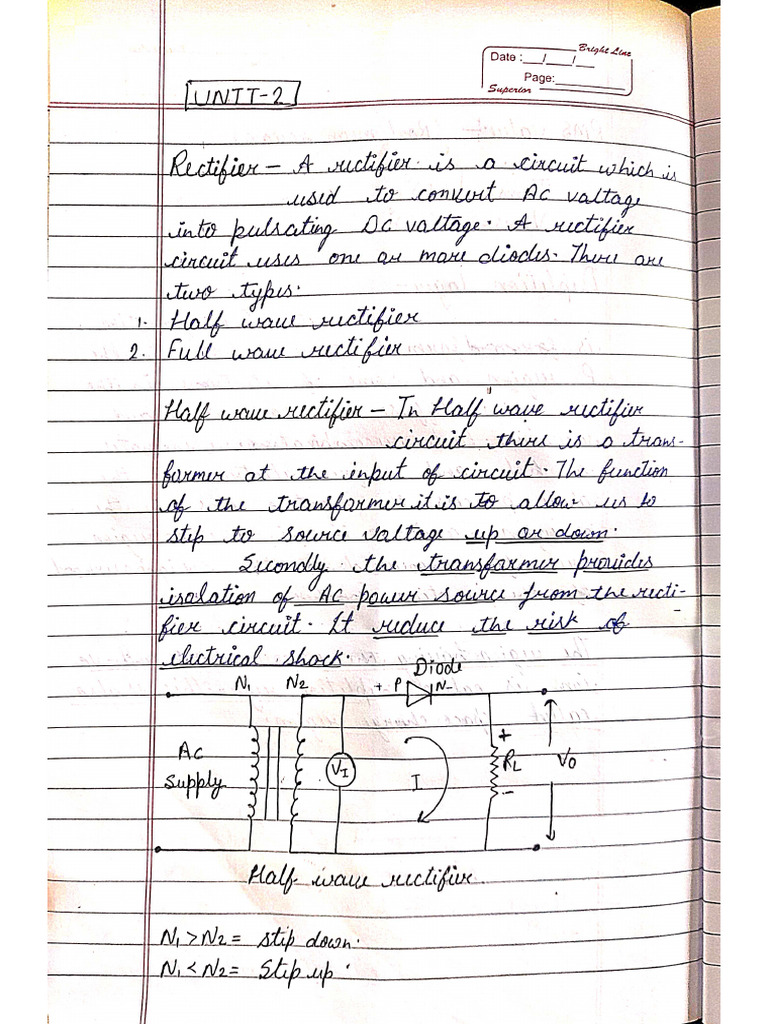 Bright Line
Date :__/__/__
Page:
Superior
UNIT-2
Rectifier - A rectifier is a circuit which is
used to convert AC voltage
into pulsating DC voltage. A rectifier
circuit uses one or more diodes. There are
two types.
1. Half wave rectifier
2. Full wave rectifier
Half wave rectifier - In Half wave rectifier
circuit there is a trans-
former at the input of circuit. The function
of the transformer it is to allow us to
step to source voltage up or down.
Secondly the transformer provides
isolation of AC power source from the recti-
fier circuit. It reduce the risk of
electrical shock.
Diode
N1 N2 + P N-
AC
Supply
VI
I
+
RL
-
Vo
Half wave rectifier.
N1 > N2 = step down.
N1 < N2 = Step up.